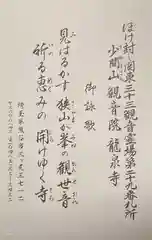 ぼけ封じ関東三十三観音霊場第十九番札所
少間山観音院龍泉寺
御詠歌
見はるかす狭山か峯の観世音
祈る恵みの開けゆく寺
埼玉県熊谷市三ヶ尻三七一二